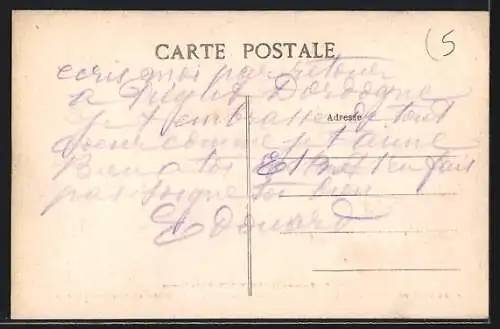 CARTE POSTALE
(5
ecris moi par retour
a Dordogne
je t embrasse de tout
Adresse
coeur comme je t'aime
Bien a toi t'en fais
pas soigne toi bien
Edouard